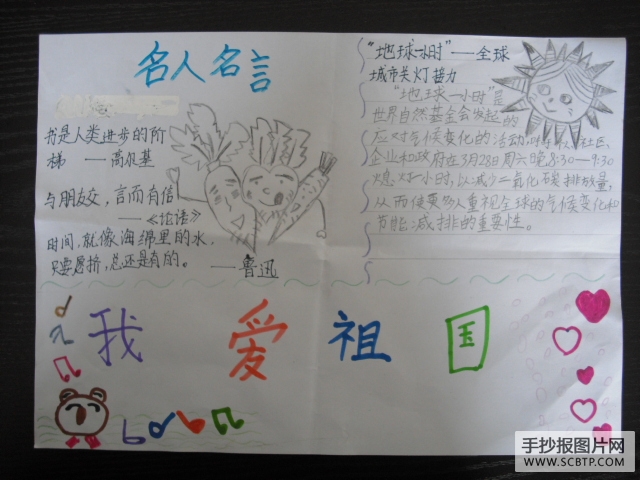 名人名言
书是人类进步的阶
梯 ——高尔基
与朋友交，言而有信
——《论语》
时间，就像海绵里的水，
只要愿挤，总还是有的。
——鲁迅
“地球一小时”——全球
城市关灯接力
“地球一小时”是
世界自然基金会发起的
应对气候变化的活动，
企业和政府在3月28日周六晚8:30—9:30
熄灯一小时，以减少二氧化碳排放量，
从而使更多人重视全球的气候变化和
节能减排的重要性。
我爱祖国
手抄报图片网
WWW.SCBTP.COM